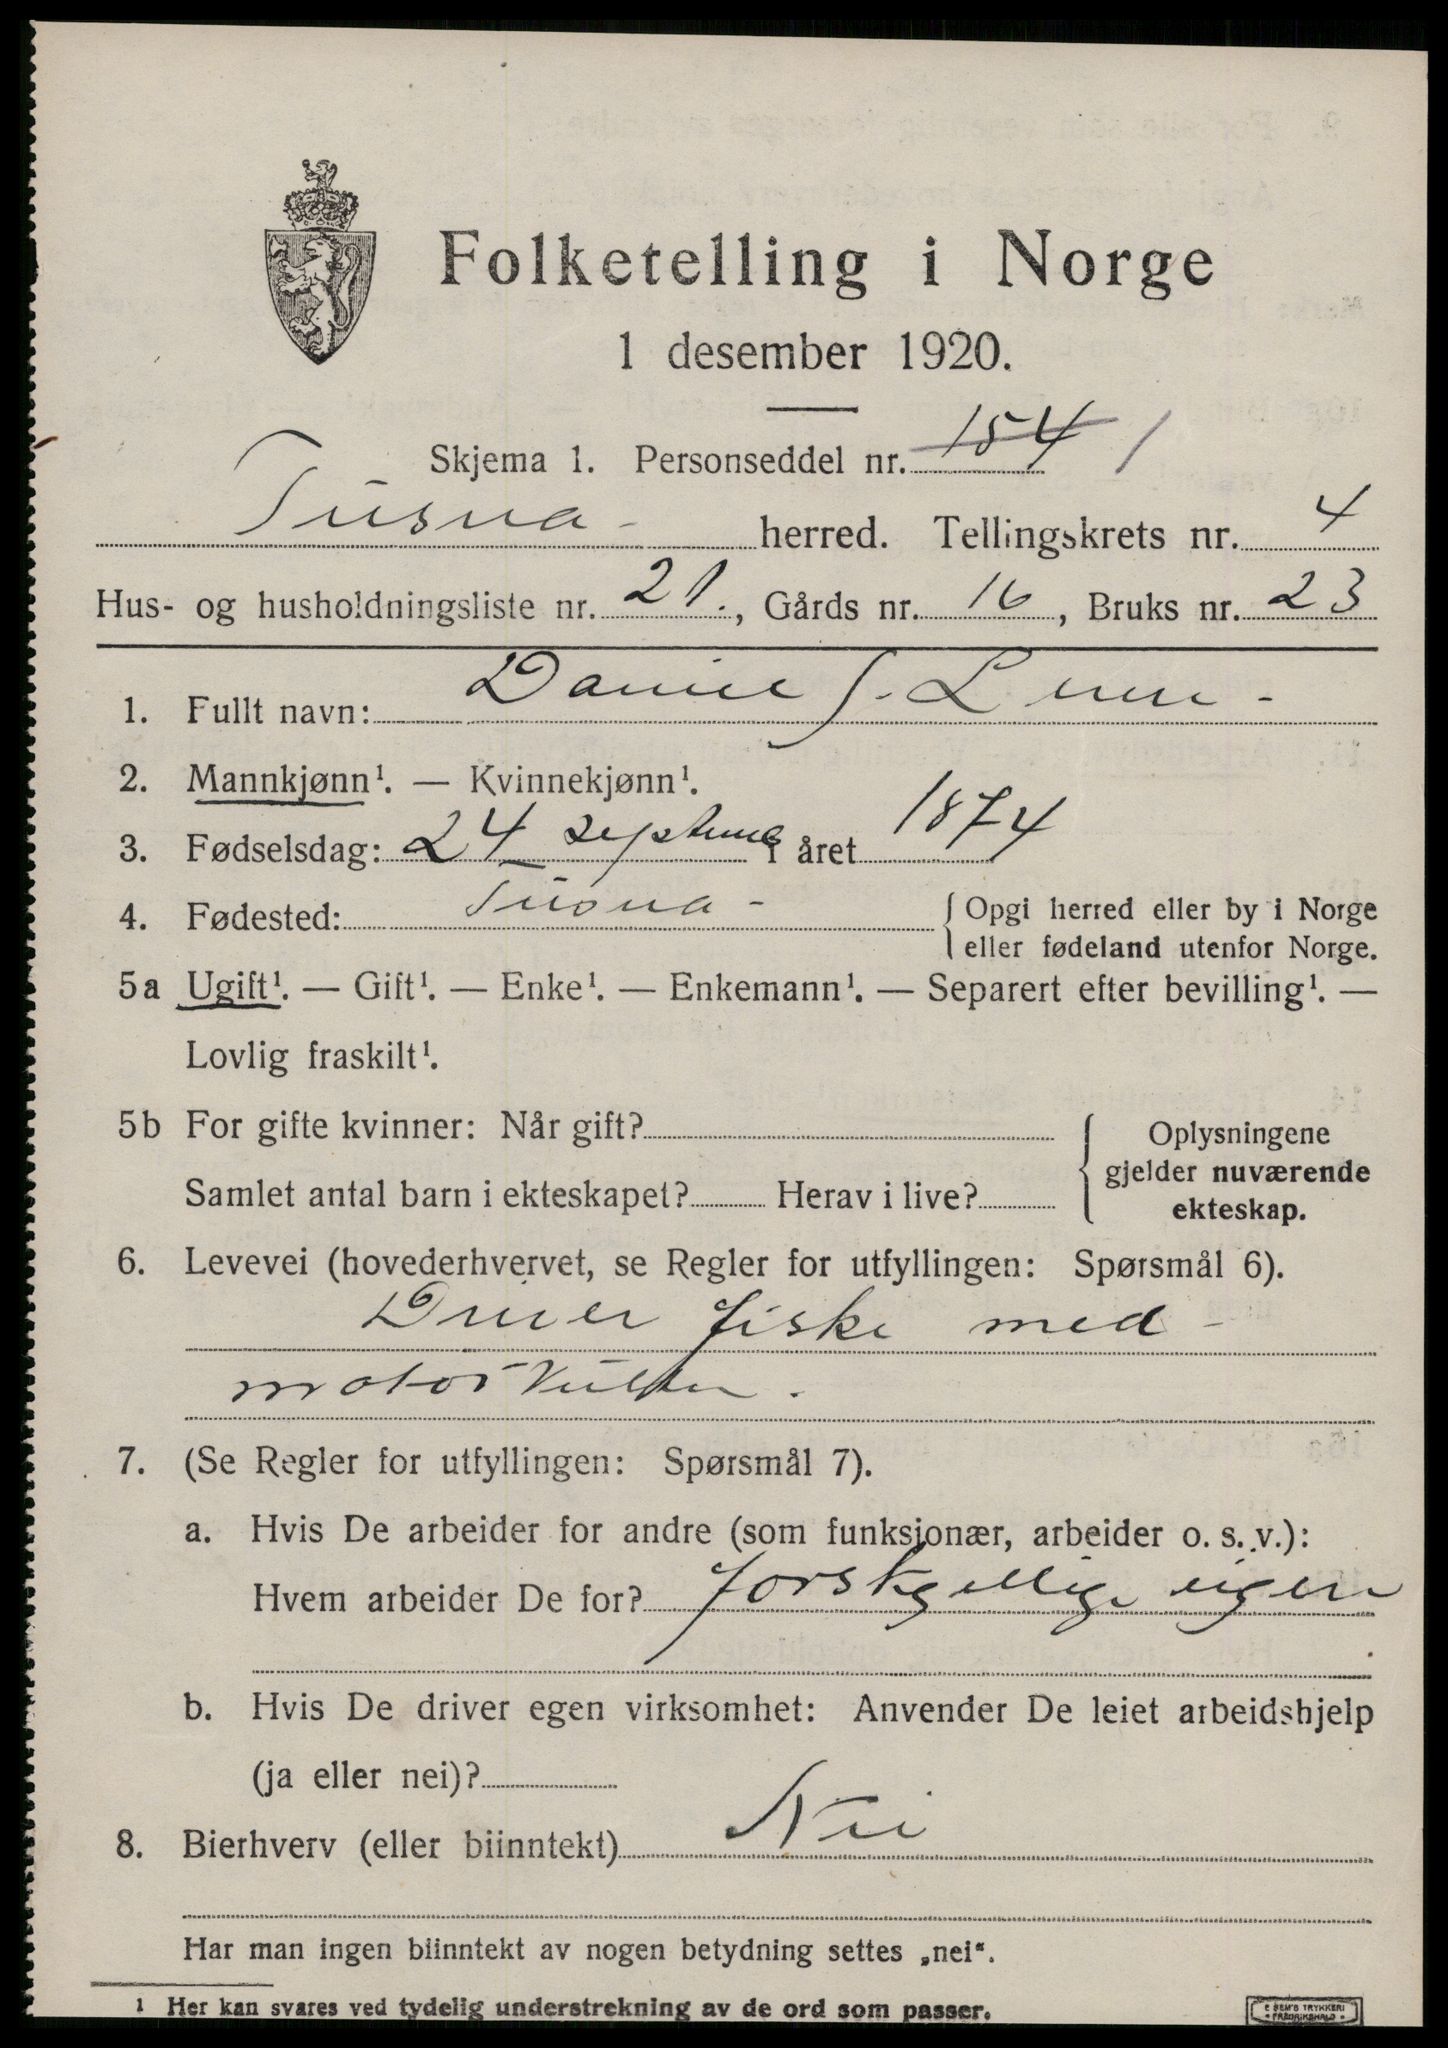 Folketelling i Norge
1 desember 1920.
Skjema 1. Personseddel nr. 154 1
Tusna herred. Tellingskrets nr. 4
Hus- og husholdningsliste nr. 21., Gårds nr. 16, Bruks nr. 23
1. Fullt navn: Daniel J.
2. Mannkjønn¹. — Kvinnekjønn¹.
3. Fødselsdag: 24 septembe i året 1874
4. Fødested: Tusna - Opgi herred eller by i Norge
eller fødeland utenfor Norge.
5a Ugift¹. — Gift¹. — Enke¹. — Enkemann¹. — Separert efter bevilling¹. —
Lovlig fraskilt¹.
5b For gifte kvinner: Når gift?
Samlet antal barn i ekteskapet? Herav i live?
Oplysningene
gjelder nuværende
ekteskap.
6. Levevei (hovederhvervet, se Regler for utfyllingen: Spørsmål 6).
Driver fiske med -
motorkutter.
7. (Se Regler for utfyllingen: Spørsmål 7).
a. Hvis De arbeider for andre (som funksjonær, arbeider o. s. v.):
Hvem arbeider De for? forskjellige eigere
b. Hvis De driver egen virksomhet: Anvender De leiet arbeidshjelp
(ja eller nei)?
8. Bierhverv (eller biinntekt) Nei
Har man ingen biinntekt av nogen betydning settes „nei“.
1 Her kan svares ved tydelig understrekning av de ord som passer.
E SEM'S TRYKKERI
FREDRIKSHALD